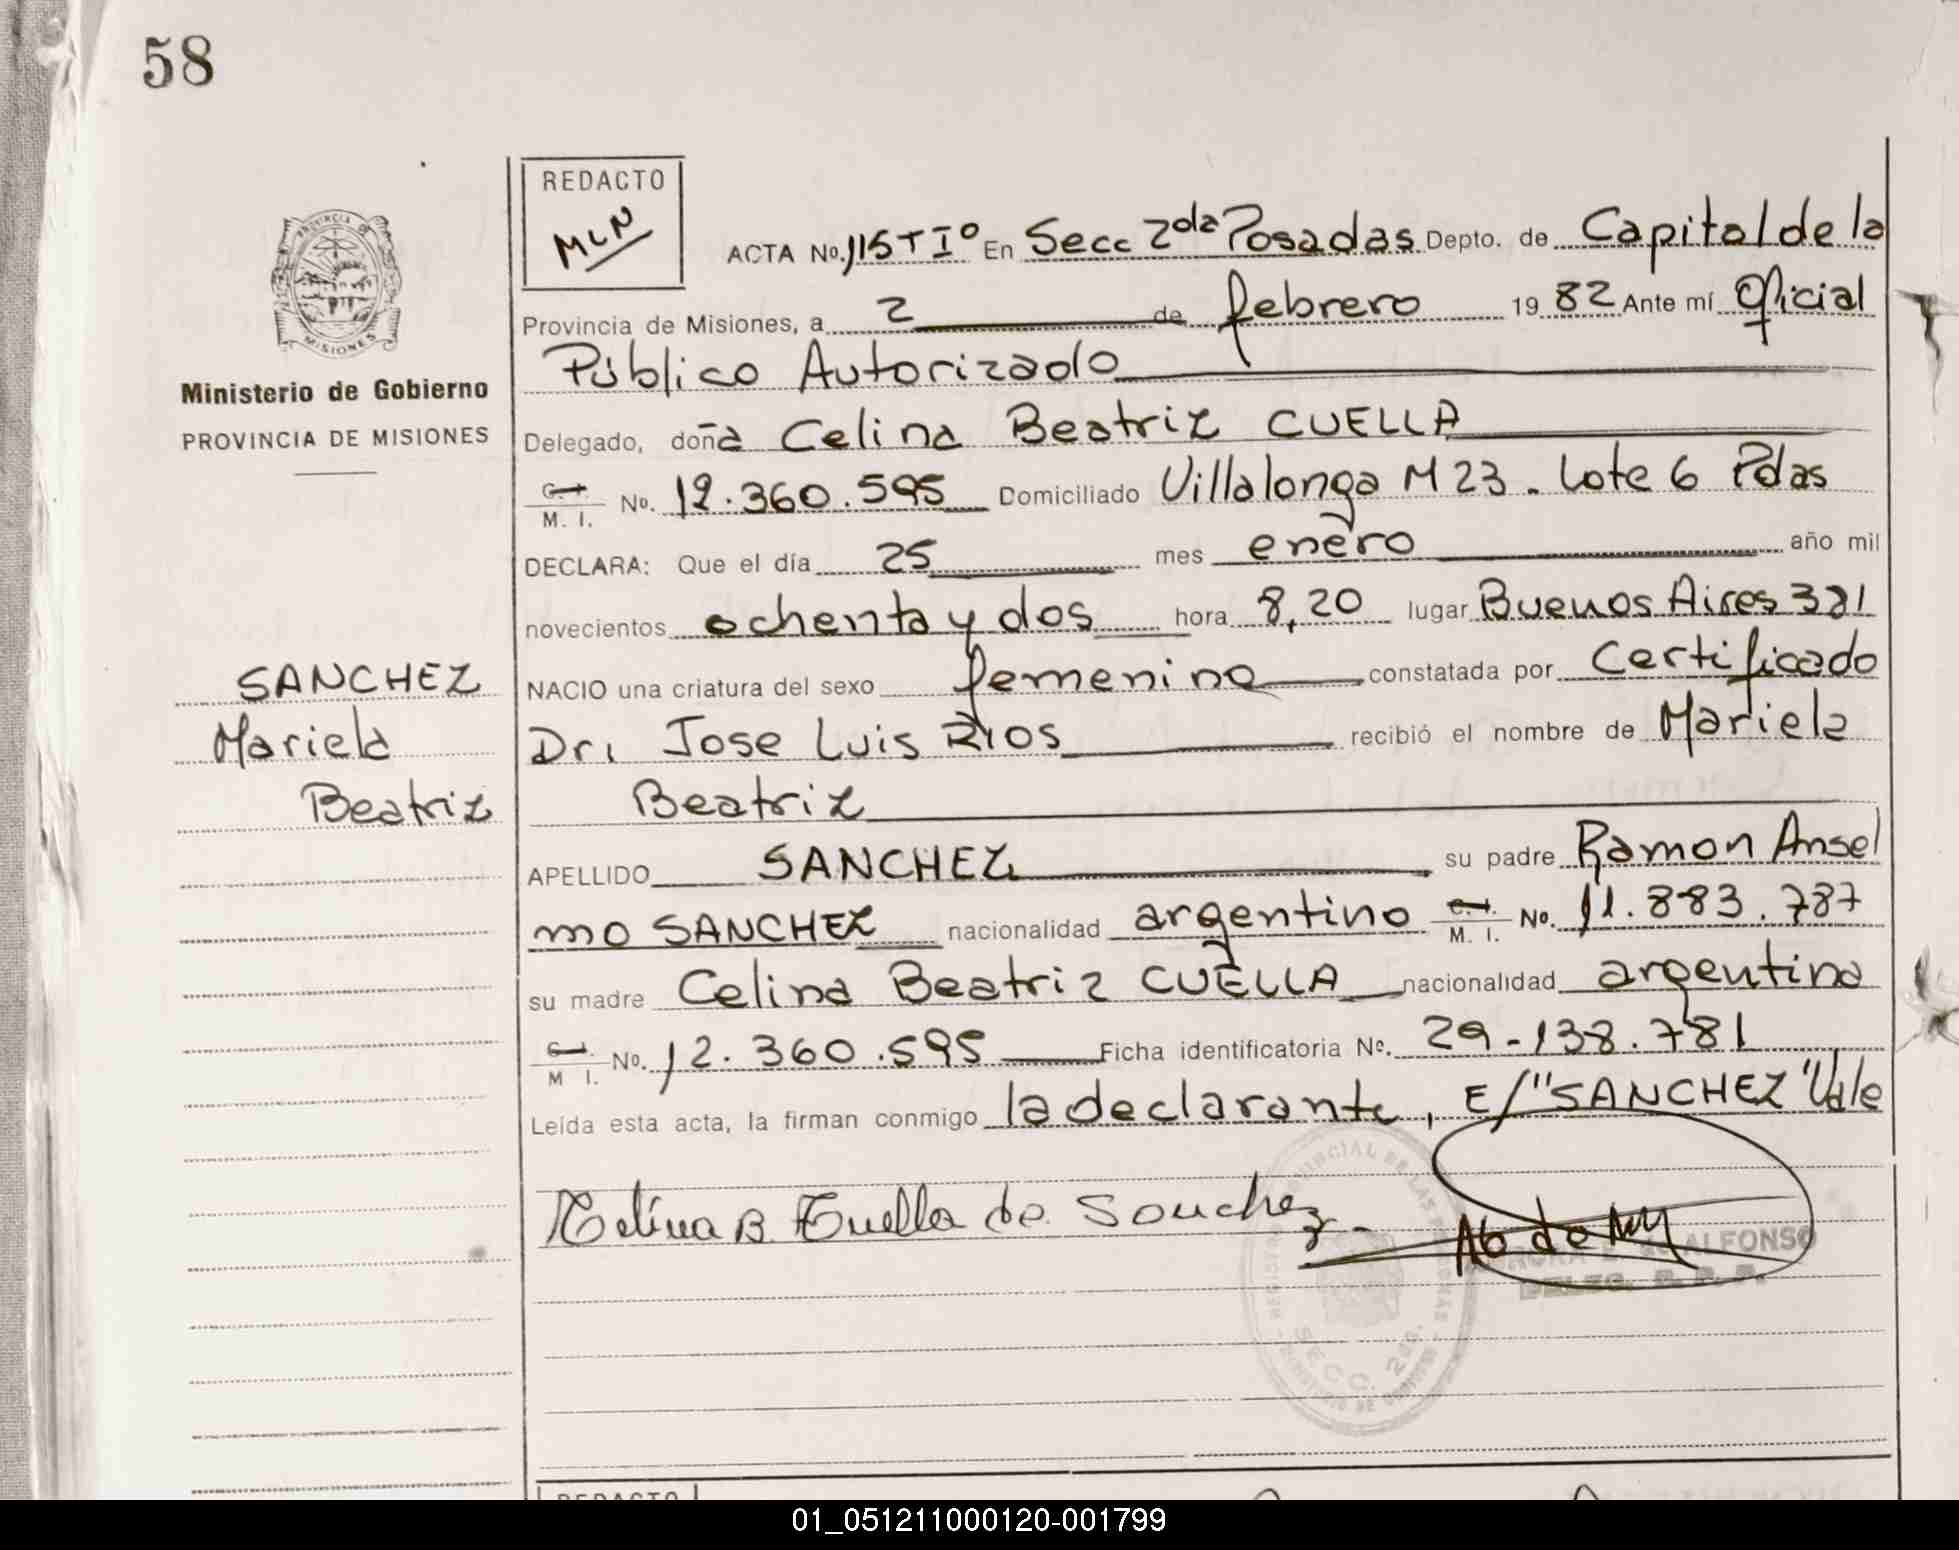 58
REDACTO
MLN
PROVINCIA DE
MISIONES
Ministerio de Gobierno
PROVINCIA DE MISIONES
ACTA No. 115 T Iº En Secc 2da Posadas Depto. de Capital de la
Provincia de Misiones, a 2 de febrero 19 82 Ante mí Oficial
Público Autorizado
Delegado, doña Celina Beatriz CUELLA
C. I. / M. I. No. 12.360.595 Domiciliado Villalonga M 23. Lote 6 Pdas
DECLARA: Que el día 25 mes enero año mil
novecientos ochenta y dos hora 8,20 lugar Buenos Aires 321
SANCHEZ
NACIO una criatura del sexo femenino constatada por Certificado
Mariela
Dr. Jose Luis Rios recibió el nombre de Mariela
Beatriz
Beatriz
APELLIDO SANCHEZ su padre Ramon Ansel
mo SANCHEZ nacionalidad argentino C. I. / M. I. No. 11.883.787
su madre Celina Beatriz CUELLA nacionalidad argentina
C. I. / M I. No. 12.360.595 Ficha identificatoria No. 29-138.781
Leída esta acta, la firman conmigo la declarante, E/"SANCHEZ" Vale
Celina B. Cuella de Sanchez
ALFONSO
DELEG. R. P. P.
SECC. 2da.
REDACTO
01_051211000120-001799